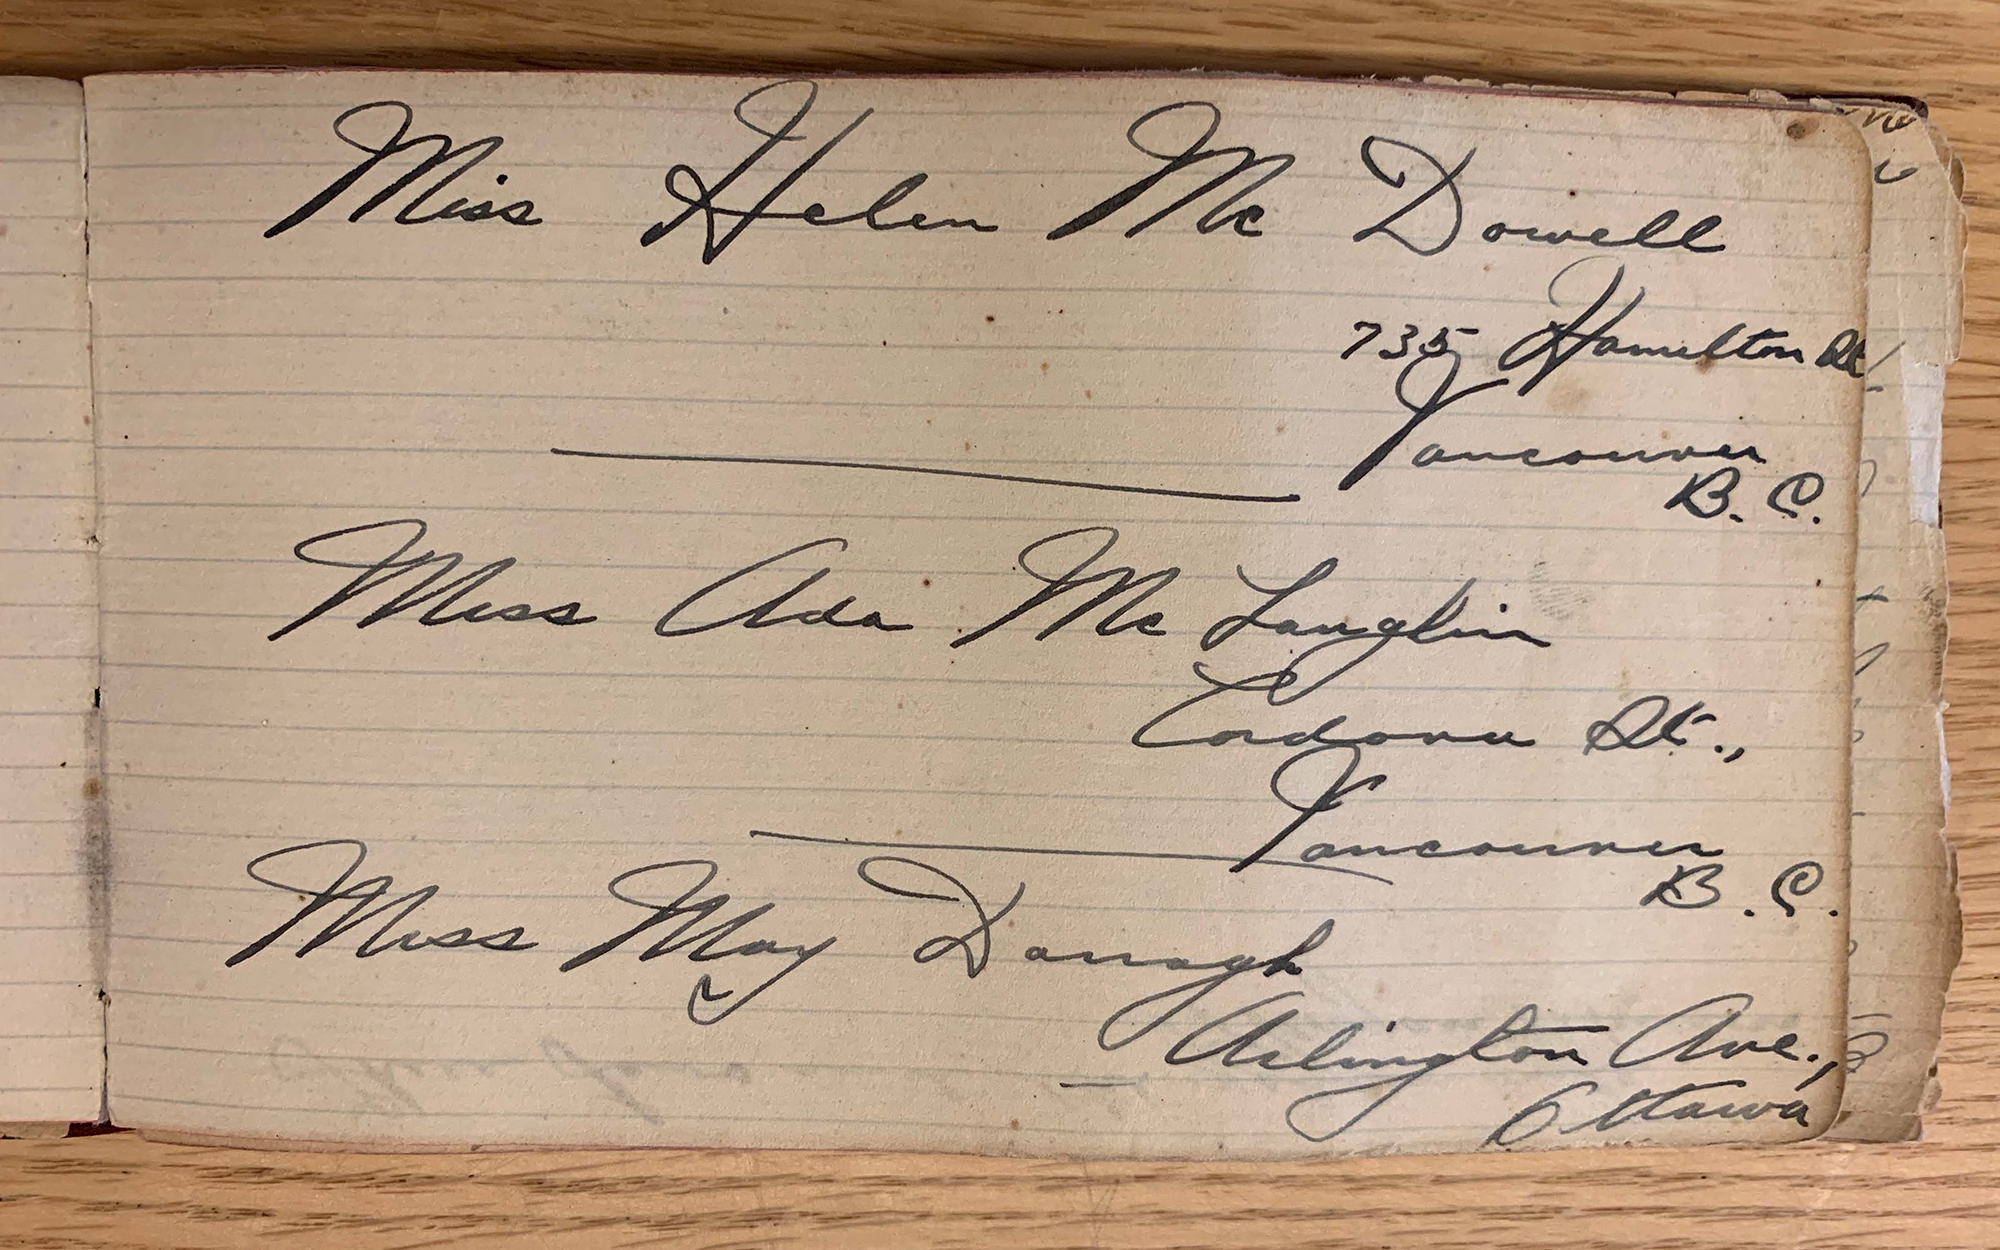 Miss Helen Mc Dowell
735 Hamilton St.
Vancouver
B. C.
Miss Ada Mc Lauglin
Cordova St.,
Vancouver
B. C.
Miss May Donagh
Arlington Ave.,
Ottawa